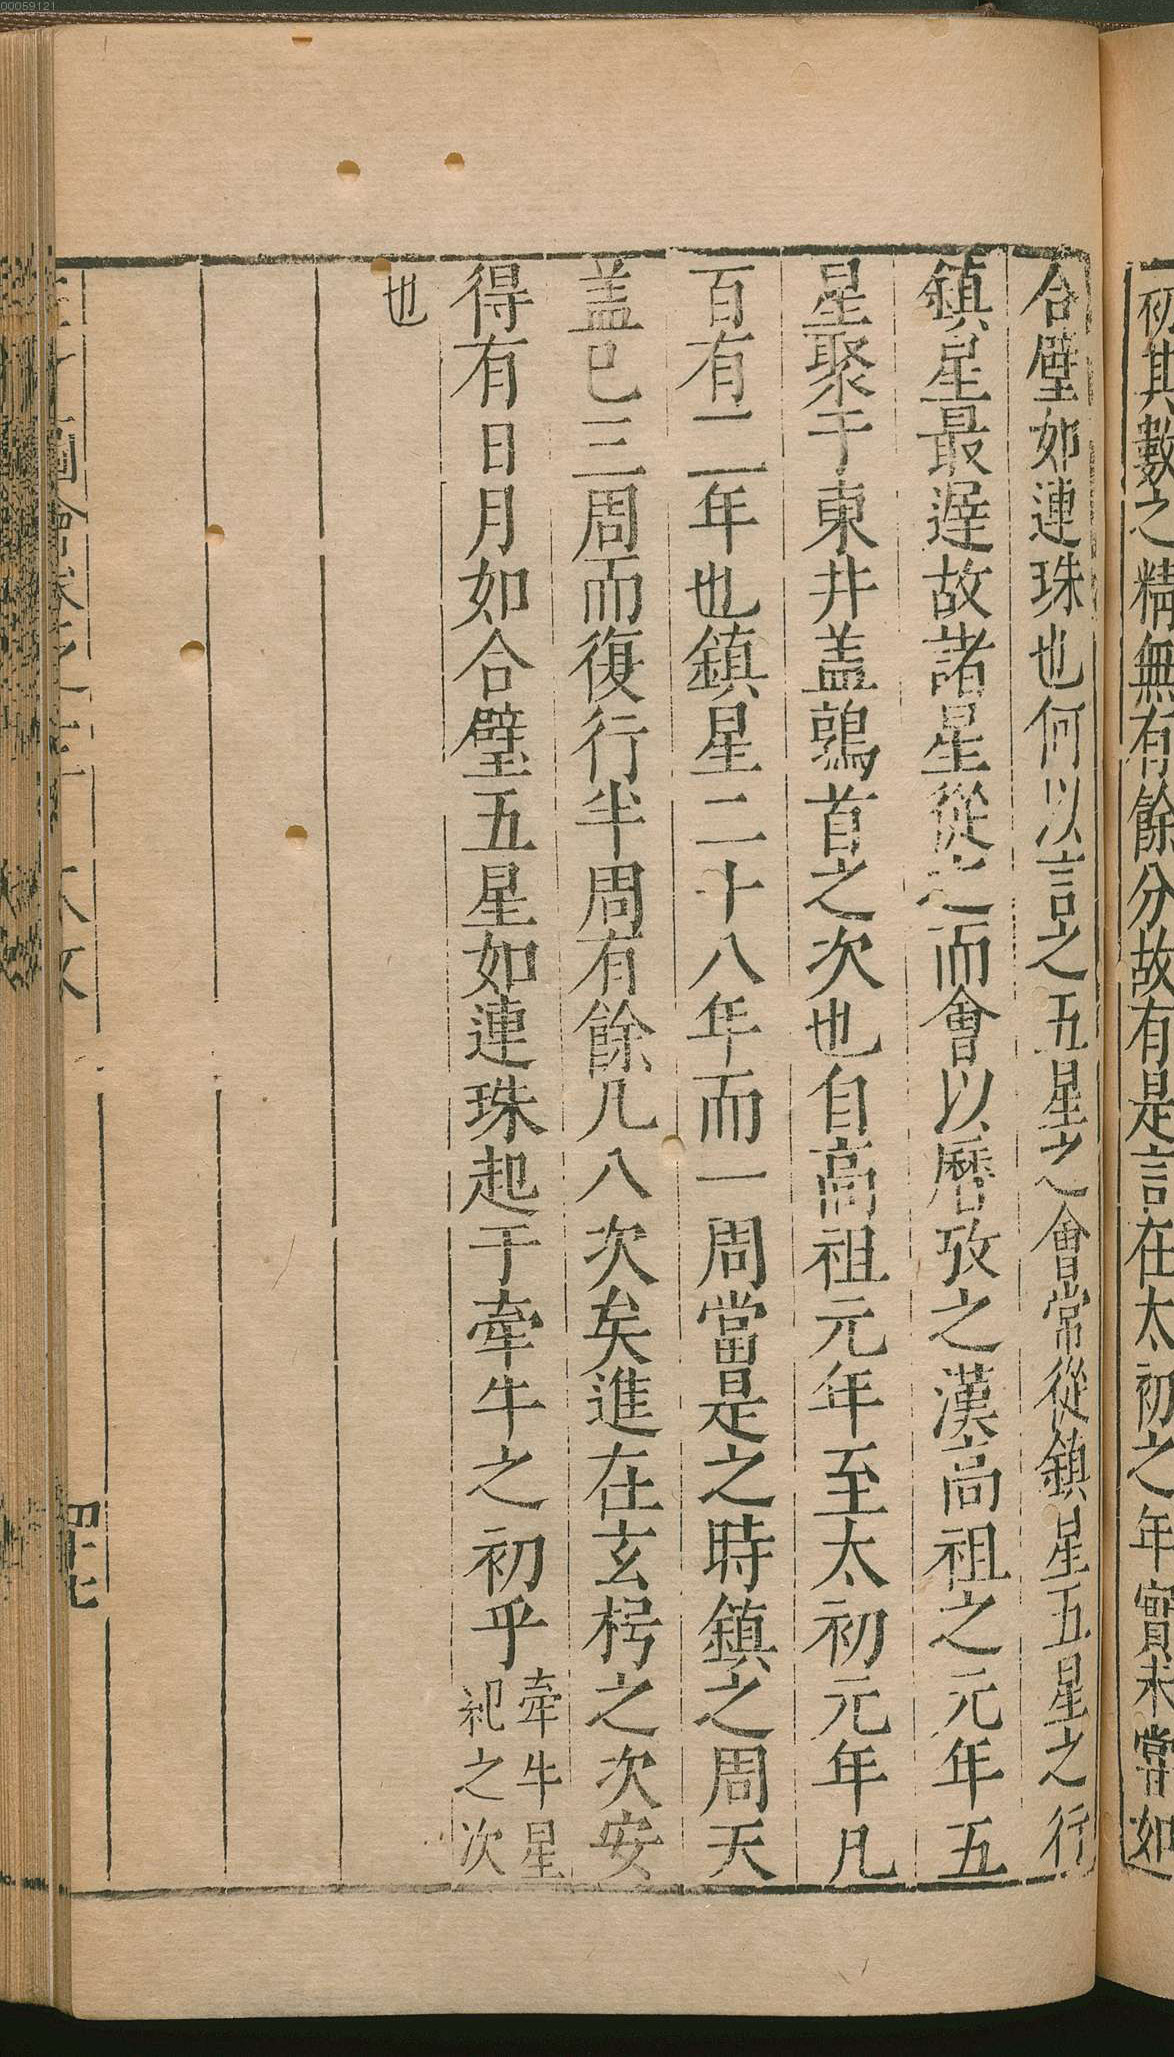 00059121
初其數之精無有餘分故有是言在太初之年實未嘗如
合璧如連珠也何以言之五星之會常從鎮星五星之行
鎮星最遲故諸星從之而會以曆攷之漢高祖之元年五
星聚于東井盖鶉首之次也自高祖元年至太初元年凡
百有二年也鎮星二十八年而一周當是之時鎮之周天
盖已三周而復行半周有餘凡八次矣進在玄枵之次安
得有日月如合璧五星如連珠起于牽牛之初乎牽牛星
紀之次
也
四十七